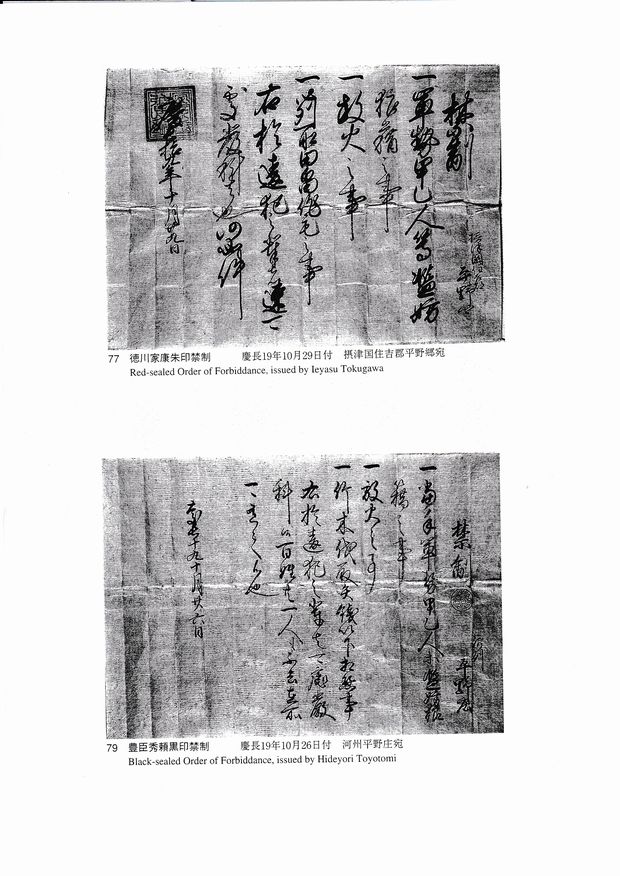 禁制
平野
一軍勢甲乙人等濫妨
狼藉之事
一放火之事
一苅取田畠作毛之事
右於違犯之輩速可
處嚴科者也仍如件
慶長拾九年十月廿九日
77 徳川家康朱印禁制 慶長19年10月29日付 摂津国住吉郡平野郷宛
Red-sealed Order of Forbiddance, issued by Ieyasu Tokugawa
禁制
平野庄
一当手軍勢甲乙人等濫妨狼
藉之事
一放火之事
一竹木伐取矢銭以下相懸事
右於違犯之輩者可處嚴
科
慶長十九十月廿六日
79 豊臣秀頼黒印禁制 慶長19年10月26日付 河州平野庄宛
Black-sealed Order of Forbiddance, issued by Hideyori Toyotomi